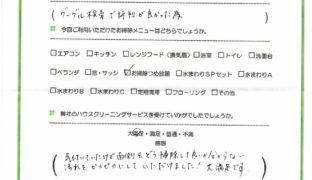 (グーグル検索で評判が良かった為)
※ 今回ご利用いただけたお掃除メニューはどちらでしょうか。
□エアコン □キッチン □レンジフード（換気扇）□浴室 □トイレ □洗面台
□ベランダ □窓・サッシ ☑お掃除つめ放題 □水まわりSPセット □水まわりA
□水まわりB □水まわりC □定期清掃 □フローリング □その他
※ 弊社のハウスクリーニングサービスを受けていかがでしたでしょうか。
大満足・満足・普通・不満
感想
気付いていたけど面倒&どう掃除して良いかわからない
汚れをピカピカにしていただけました! 大満足です。